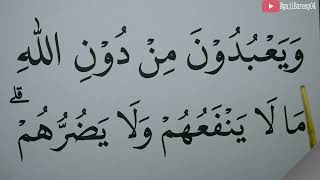 NgajiBareng04
وَيَعْبُدُوْنَ مِنْ دُوْنِ اللّٰهِ
مَا لَا يَنْفَعُهُمْ وَلَا يَضُرُّهُمْ ۗ